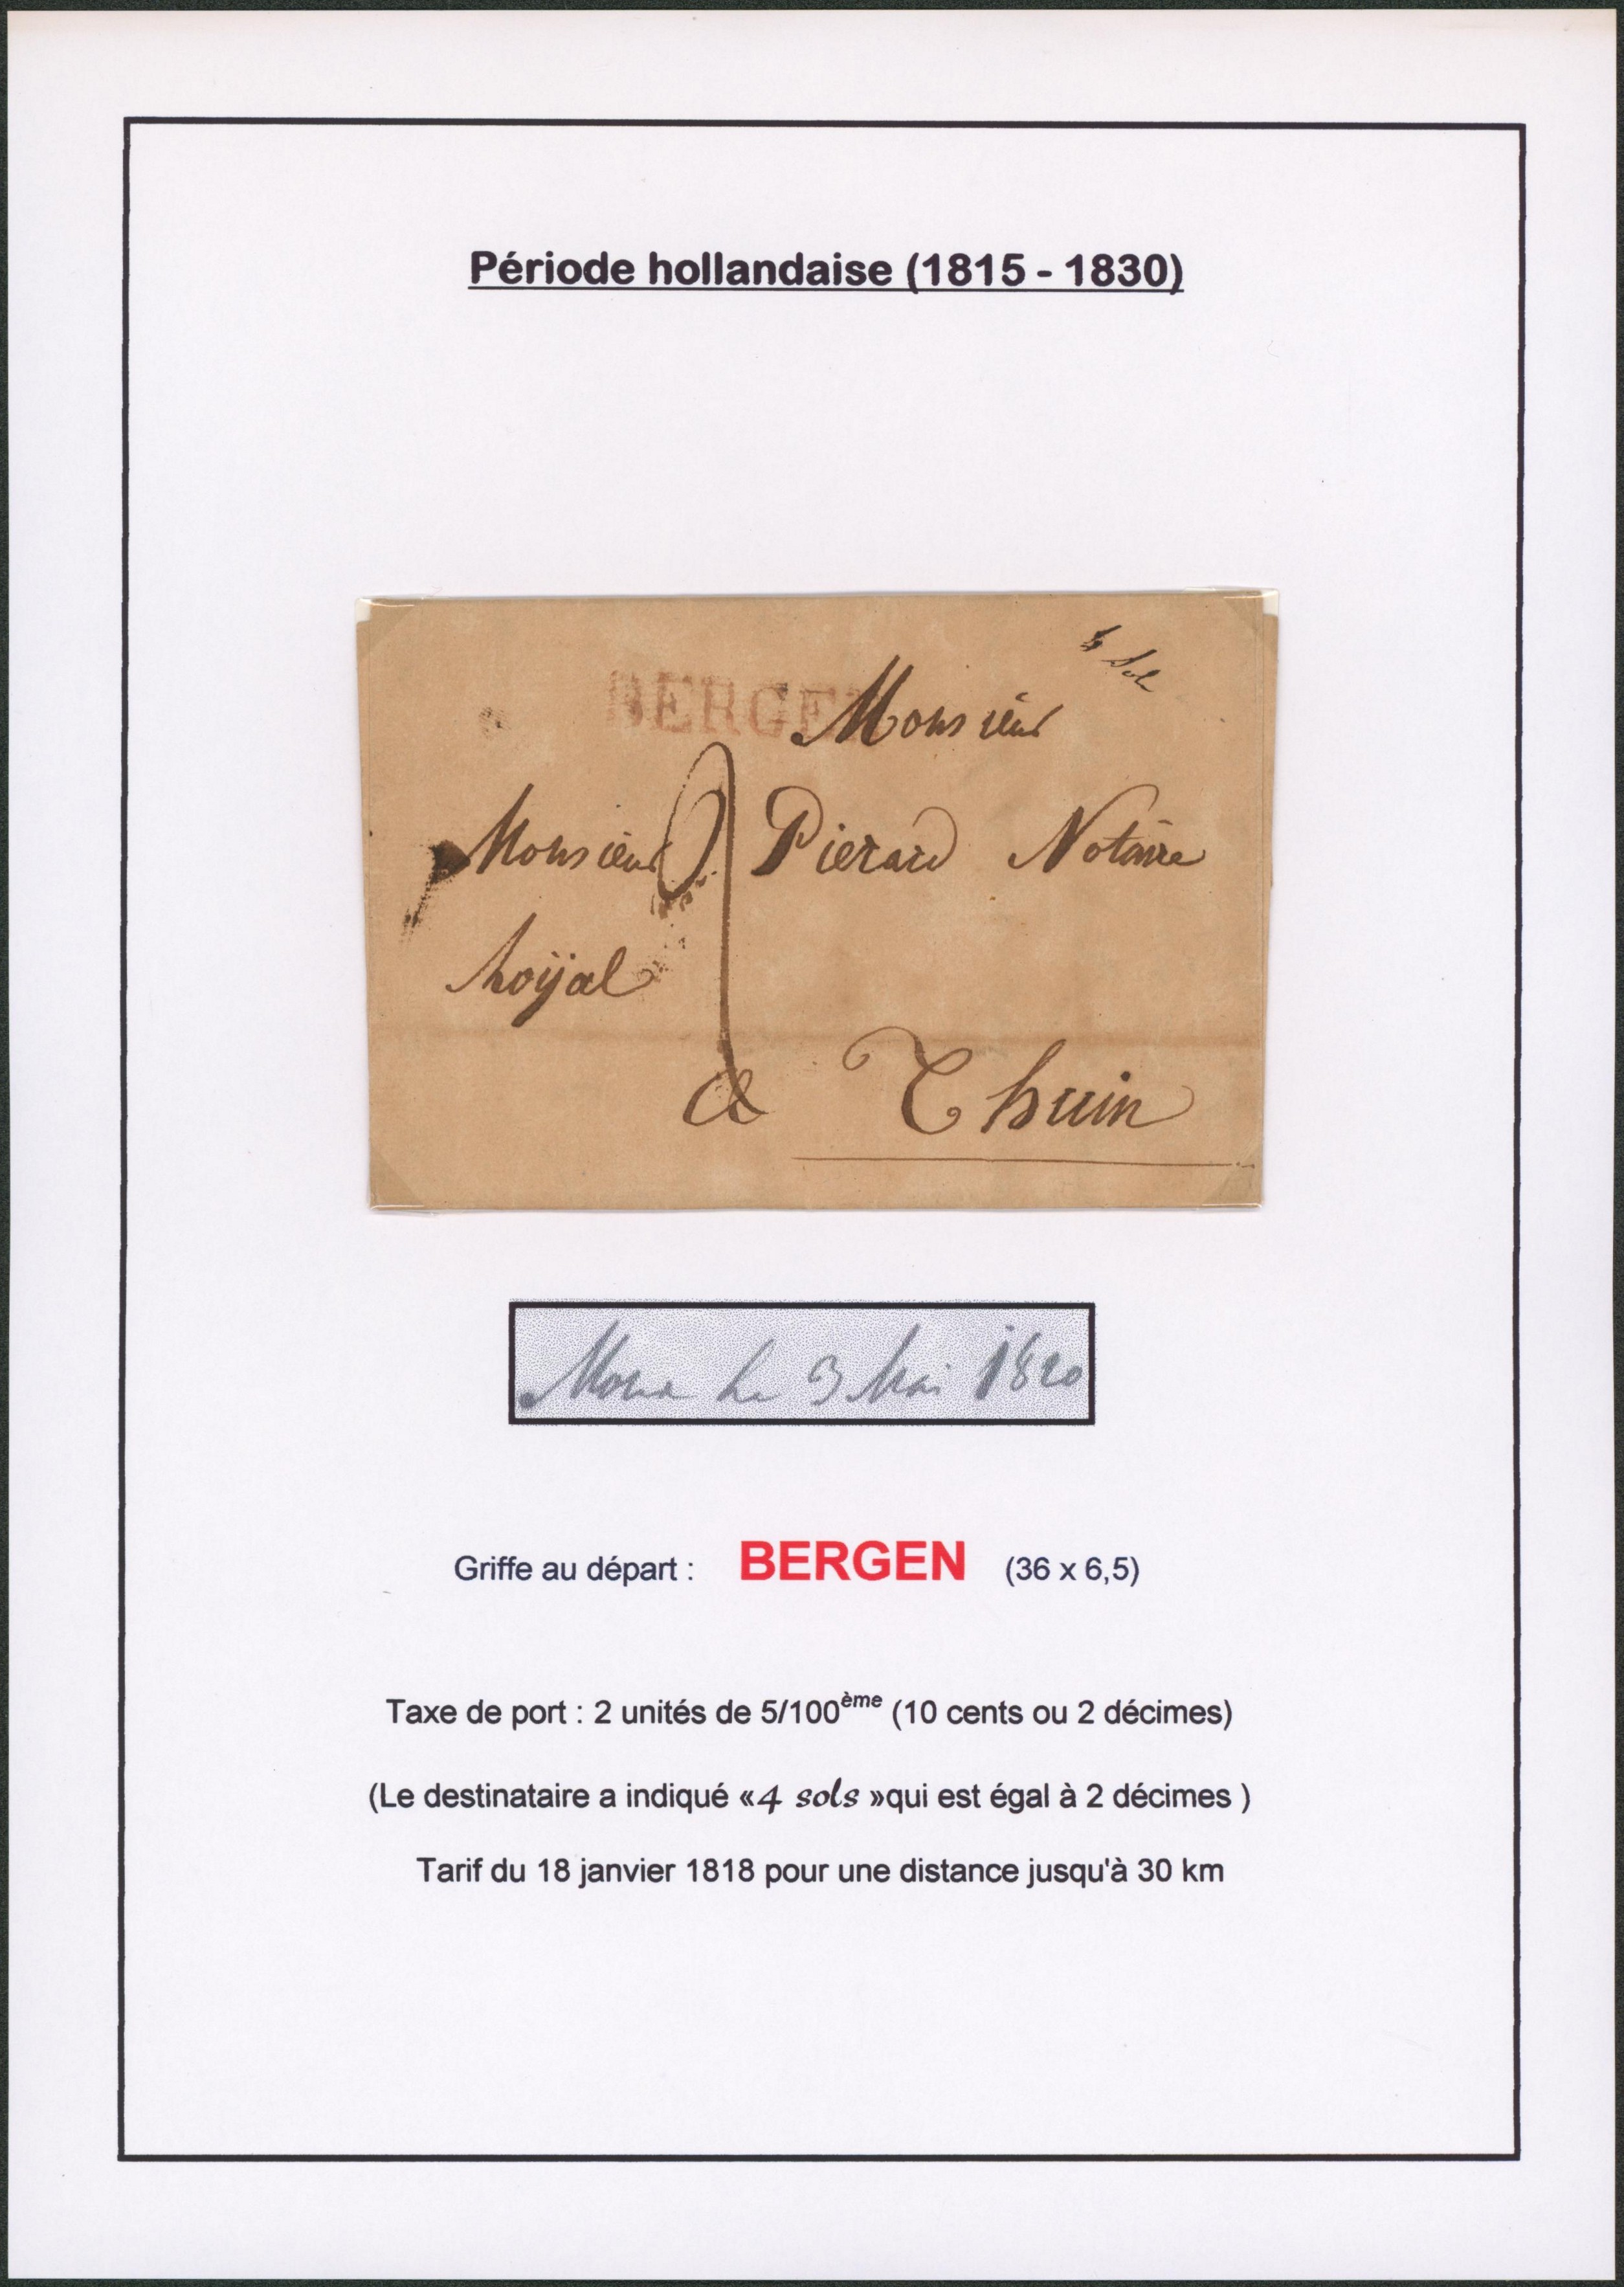 Période hollandaise (1815 - 1830)
4 Sol
BERGEN
Monsieur
Monsieur Pierard Notaire
Roÿal
2
a Thuin
Mons Le 3 Mai 1820
Griffe au départ : BERGEN (36 x 6,5)
Taxe de port : 2 unités de 5/100ème (10 cents ou 2 décimes)
(Le destinataire a indiqué «4 sols »qui est égal à 2 décimes )
Tarif du 18 janvier 1818 pour une distance jusqu'à 30 km